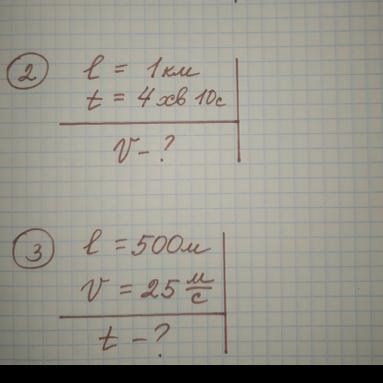 2 l = 1 км
t = 4 хв 10 с
v - ?
3 l = 500 м
v = 25 м/с
t - ?